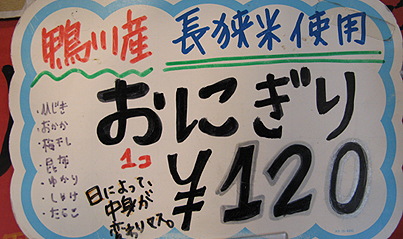 鴨川産 長狭米使用
おにぎり
・ひじき
・おかか
・梅干し
・昆布
・ゆかり
・しゃけ
・たらこ
1コ ¥120
日によって、
中身が
変わりマス。